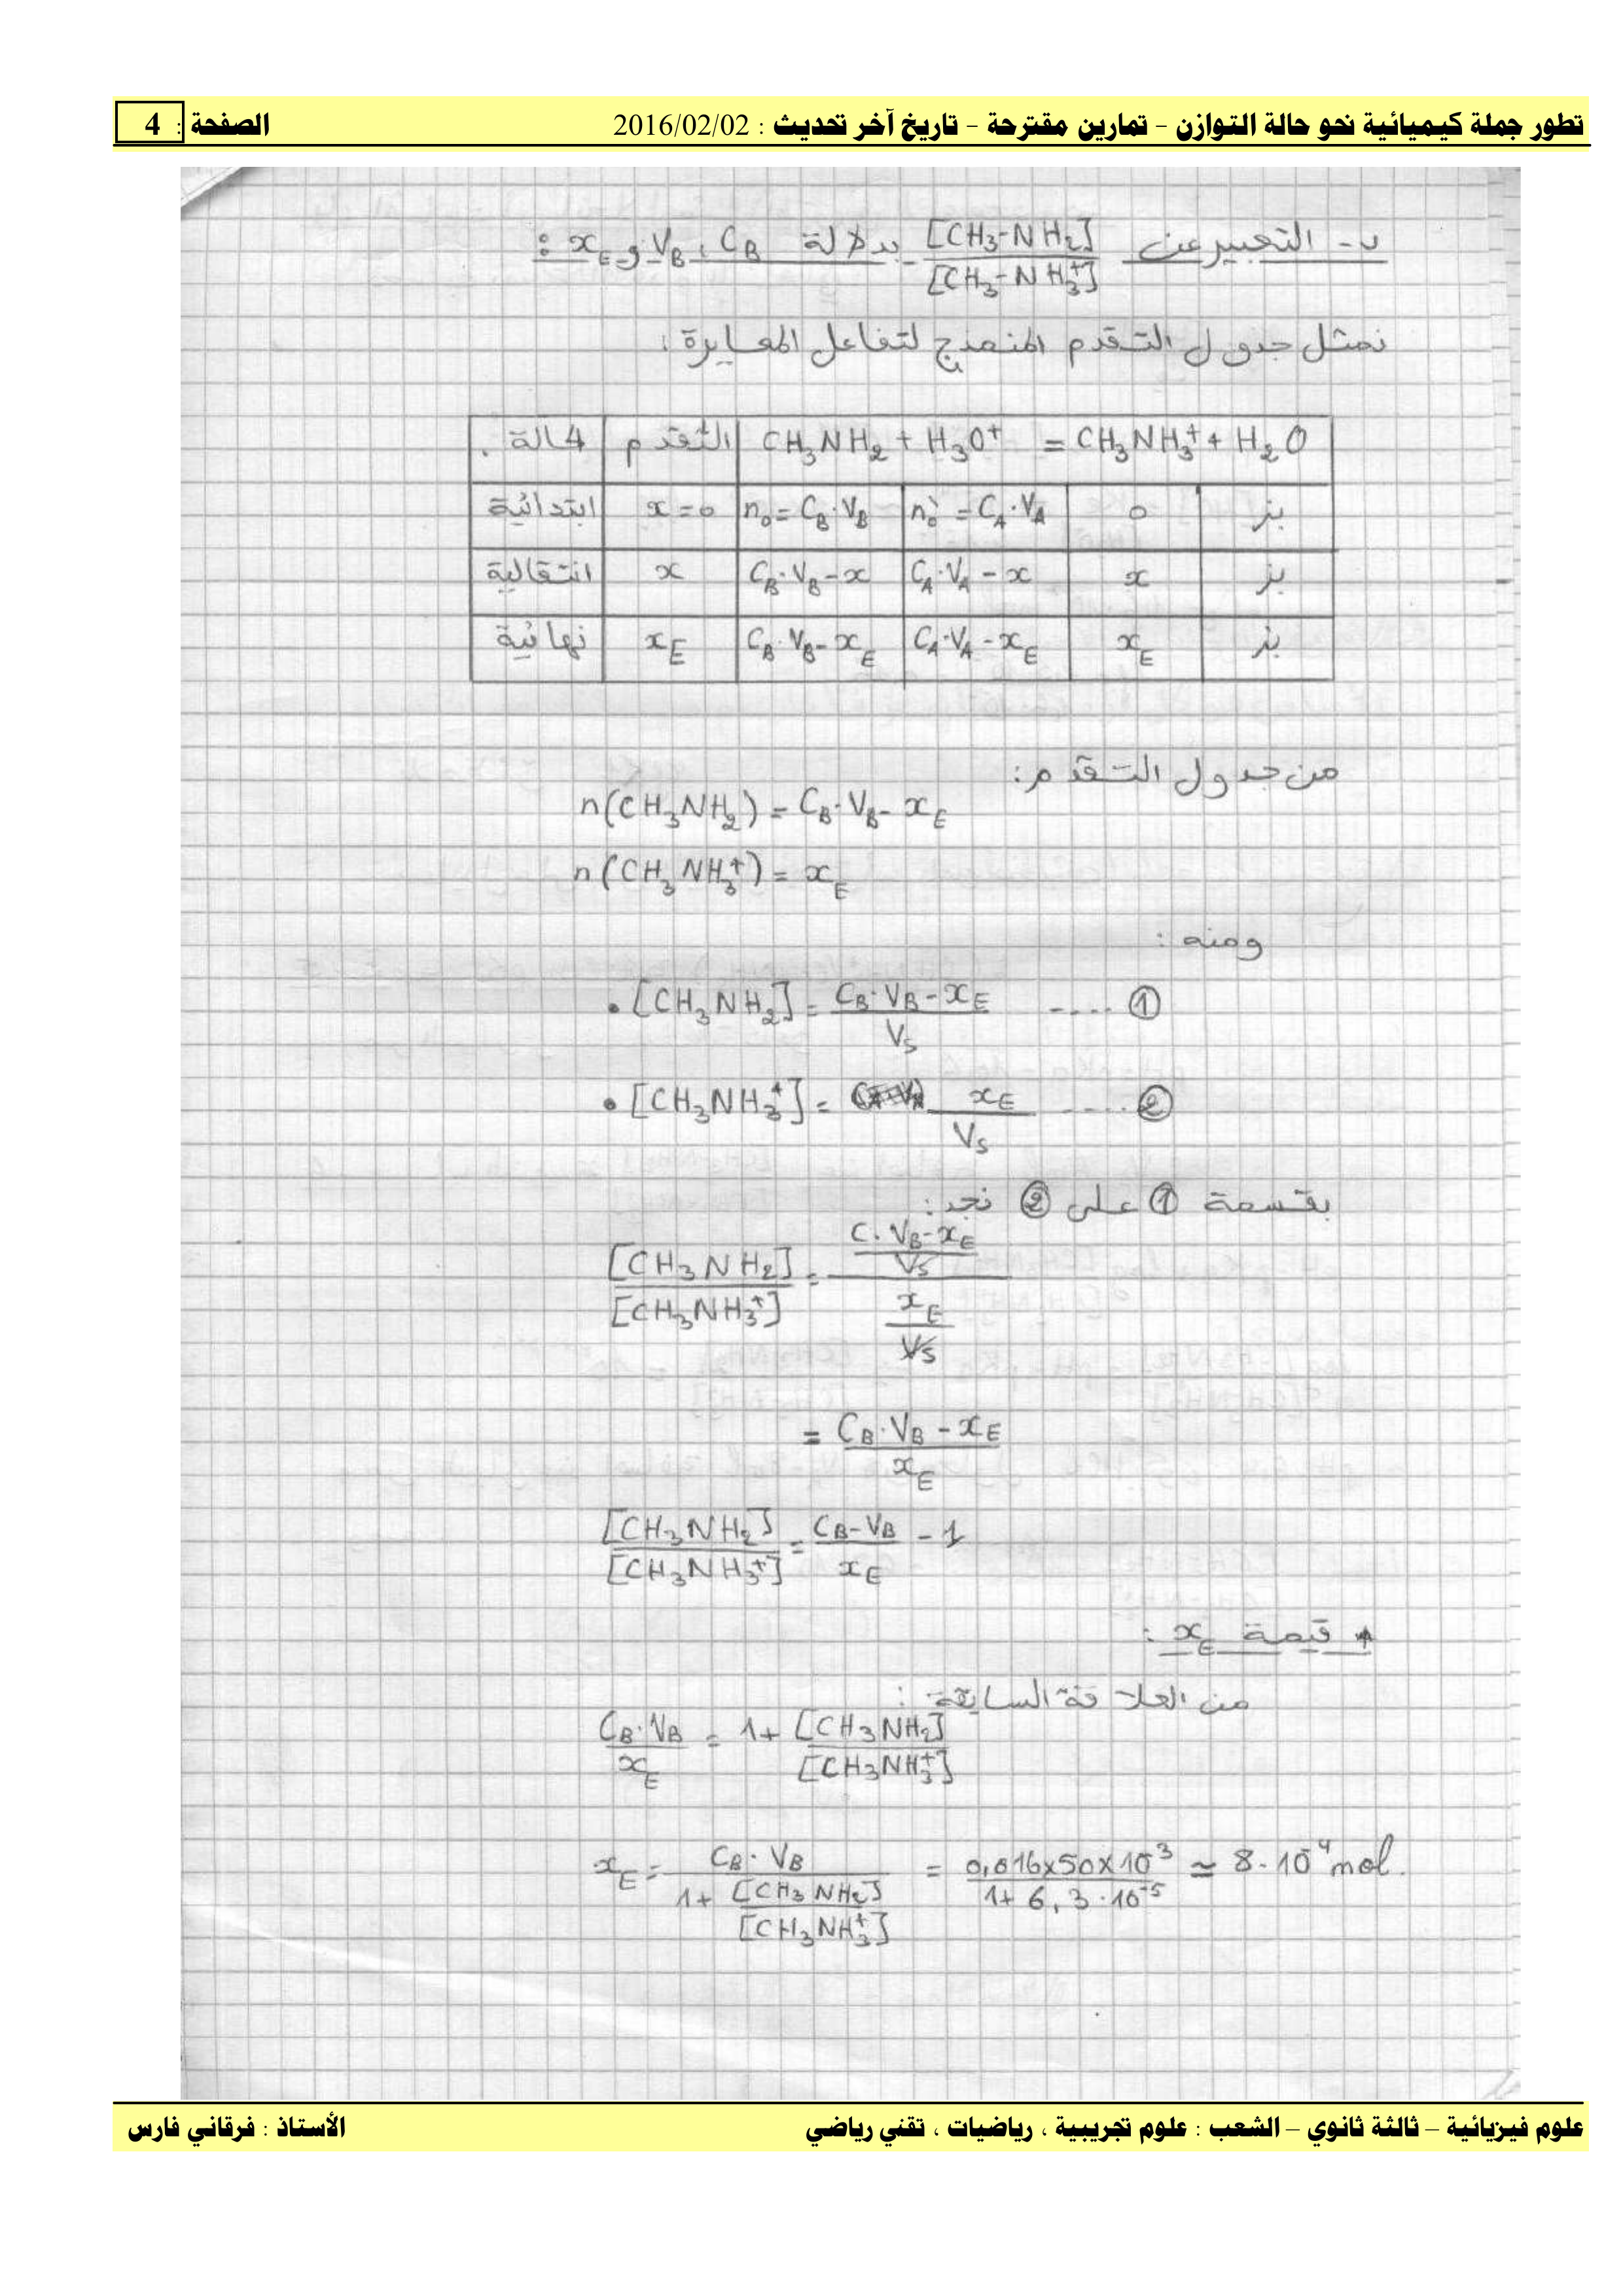 تطور جملة كيميائية نحو حالة التوازن - تمارين مقترحة - تاريخ آخر تحديث : 2016/02/02 الصفحة : 4
ب- التعبير عن [CH3-NH2]/[CH3-NH3+] بدلالة CB ، VB و xE :
نمثل جدول التقدم المنمذج لتفاعل المعايرة :
الحالة | التقدم | CH3NH2 + H3O+ = CH3NH3+ + H2O
ابتدائية | x = 0 | n0 = CB·VB | n0' = CA·VA | 0 | بز
انتقالية | x | CB·VB - x | CA·VA - x | x | بز
نهائية | xE | CB·VB - xE | CA·VA - xE | xE | بز
من جدول التقدم :
n(CH3NH2) = CB·VB - xE
n(CH3NH3+) = xE
ومنه :
• [CH3NH2] = (CB·VB - xE)/VS .... ①
• [CH3NH3+] = xE/VS .... ②
بقسمة ① على ② نجد :
[CH3NH2]/[CH3NH3+] = ((C·VB - xE)/VS)/(xE/VS)
= (CB·VB - xE)/xE
[CH3NH2]/[CH3NH3+] = (CB-VB)/xE - 1
* قيمة xE :
من العلاقة السابقة :
CB·VB/xE = 1 + [CH3NH2]/[CH3NH3+]
xE = CB·VB/(1 + [CH3NH2]/[CH3NH3+]) = (0,016×50×10^-3)/(1 + 6,3·10^-5) ≃ 8·10^-4 mol.
علوم فيزيائية – ثالثة ثانوي – الشعب : علوم تجريبية ، رياضيات ، تقني رياضي الأستاذ : فرقاني فارس